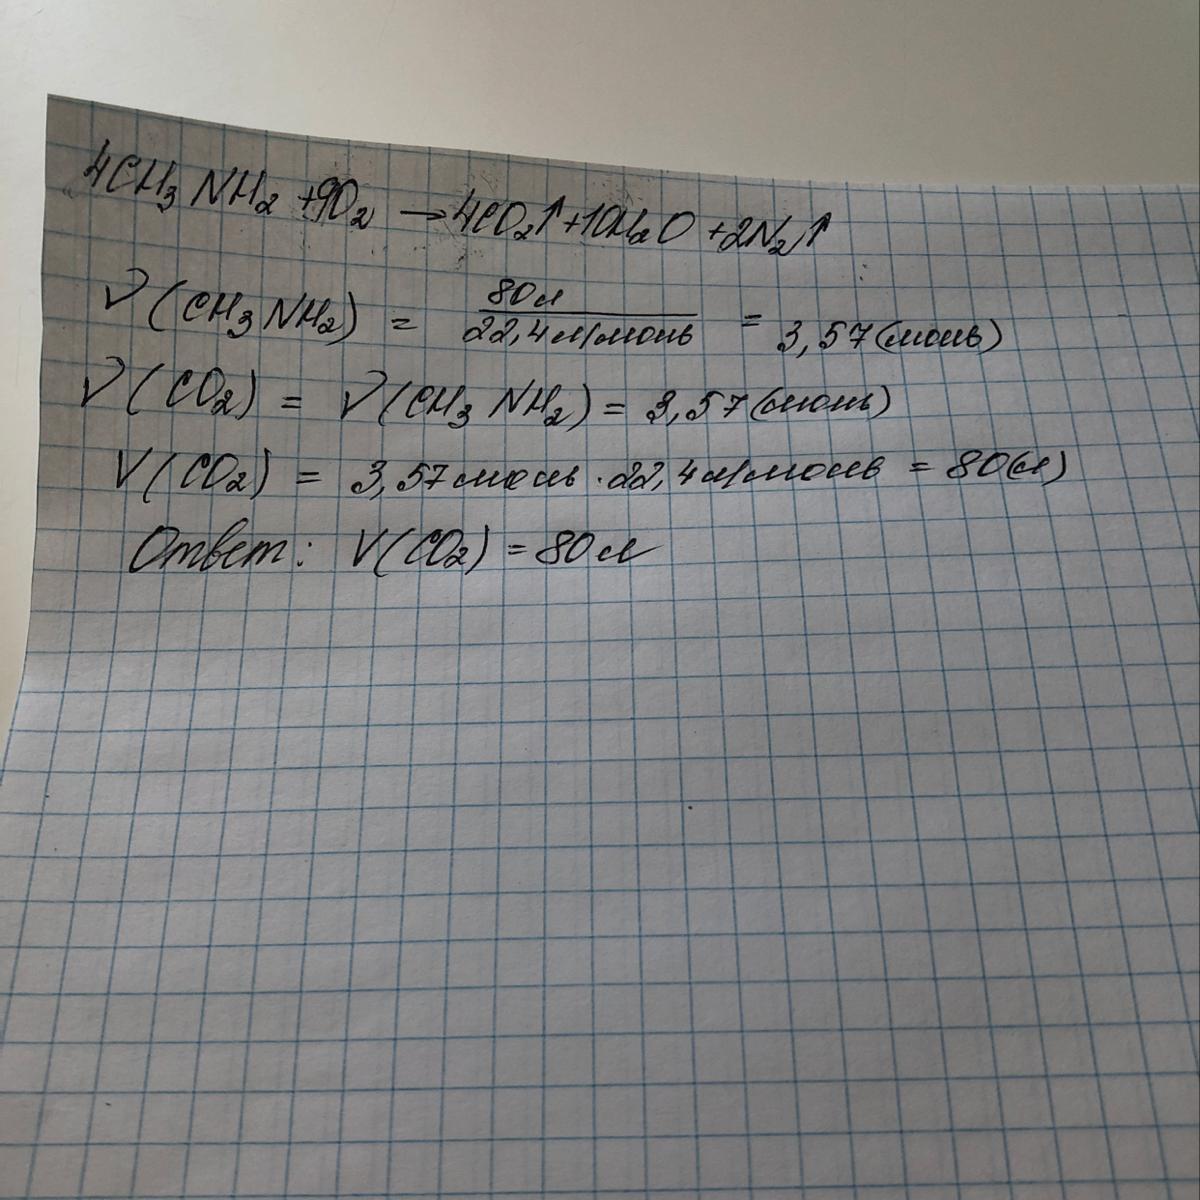 4CH₃NH₂ + 9O₂ → 4CO₂↑ + 10H₂O + 2N₂↑
ν(CH₃NH₂) = 80л / 22,4л/моль = 3,57(моль)
ν(CO₂) = ν(CH₃NH₂) = 3,57(моль)
V(CO₂) = 3,57моль · 22,4л/моль = 80(л)
Ответ: V(CO₂) = 80л